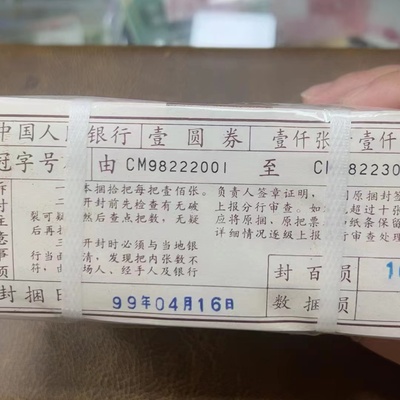 中国人民银行 壹圆券 壹仟张 壹仟
冠字号 由 CM98222001 至
封 意 事 项
一 本捆拾把每把壹佰张。 负责人签章证明, 原捆封签
二 开封前先检查有无破 上报分行审查。如 超过十张
裂可疑 然后查点把数,无疑 应将原捆、原把票 和纸条保留
后再 详细情况逐级上报 行审查处理
三 开封时必须与当地银
行当 清,发现把内张数不
符, 场人、经手人及银行
封百员
封捆日 99年04月16日 数捆员